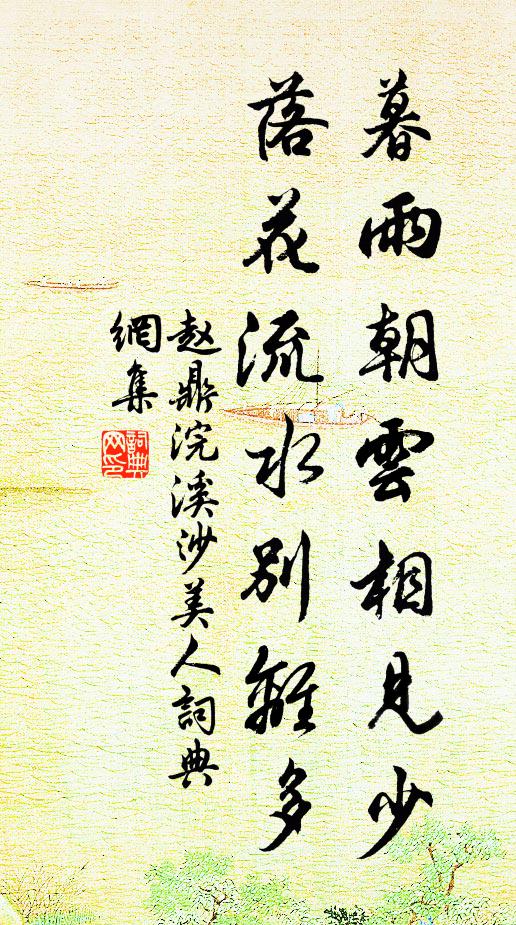 暮雨朝雲相見少
落花流水別離多
赵鼎浣溪沙美人詞典
網集
詞典
网印